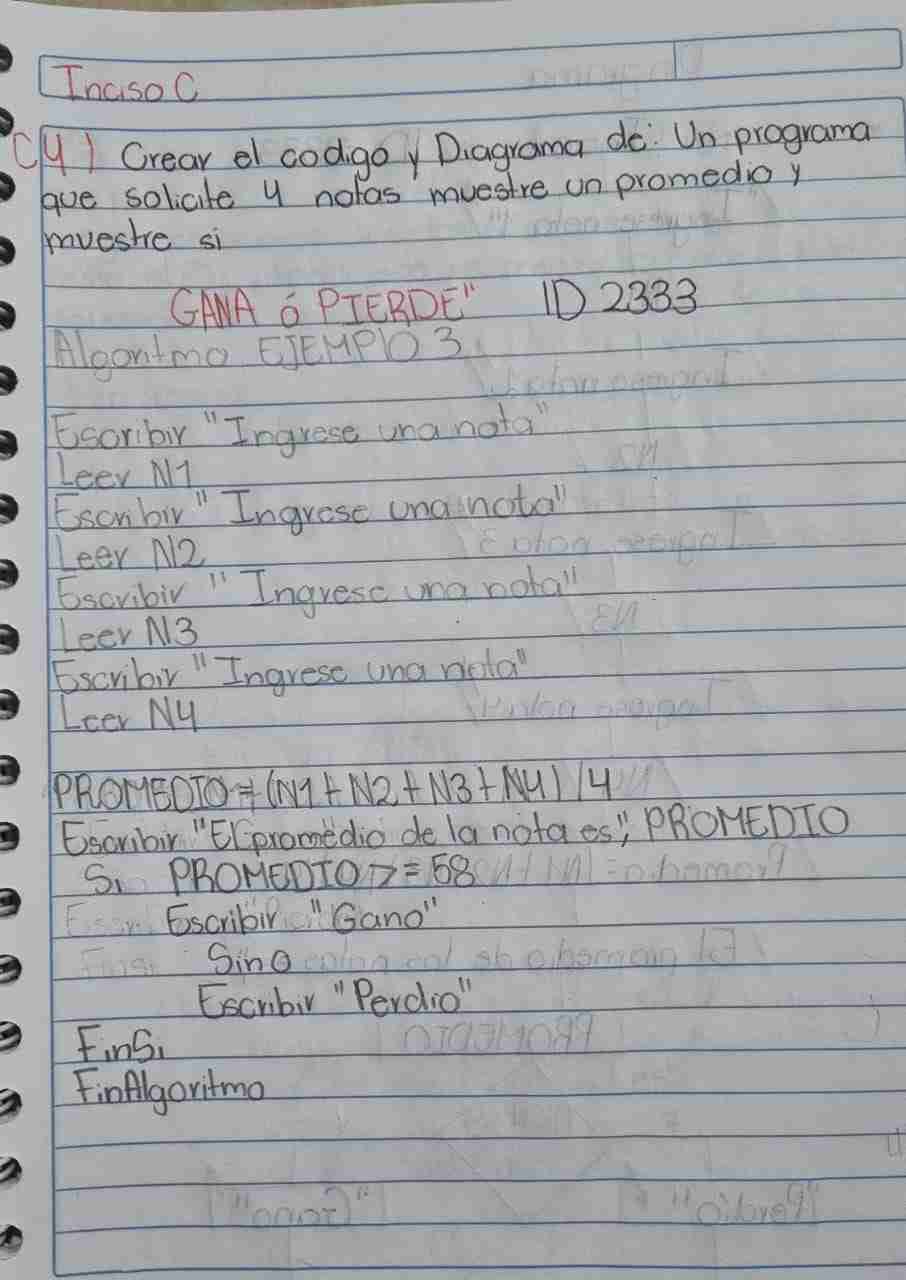 Inciso C
C4) Crear el codigo y Diagrama de: Un programa
que solicite 4 notas muestre un promedio y
muestre si
GANA ó PIERDE" ID 2333
Algoritmo EJEMPlO 3
Escribir "Ingrese una nota"
Leer N1
Escribir "Ingrese una nota"
Leer N2
Escribir "Ingrese una nota"
Leer N3
Escribir "Ingrese una nota"
Leer N4
PROMEDIO = (N1 + N2 + N3 + N4) / 4
Escribir "El promedio de la nota es", PROMEDIO
Si PROMEDIO >= 58
Escribir "Gano"
Sino
Escribir "Perdio"
FinSi
FinAlgoritmo